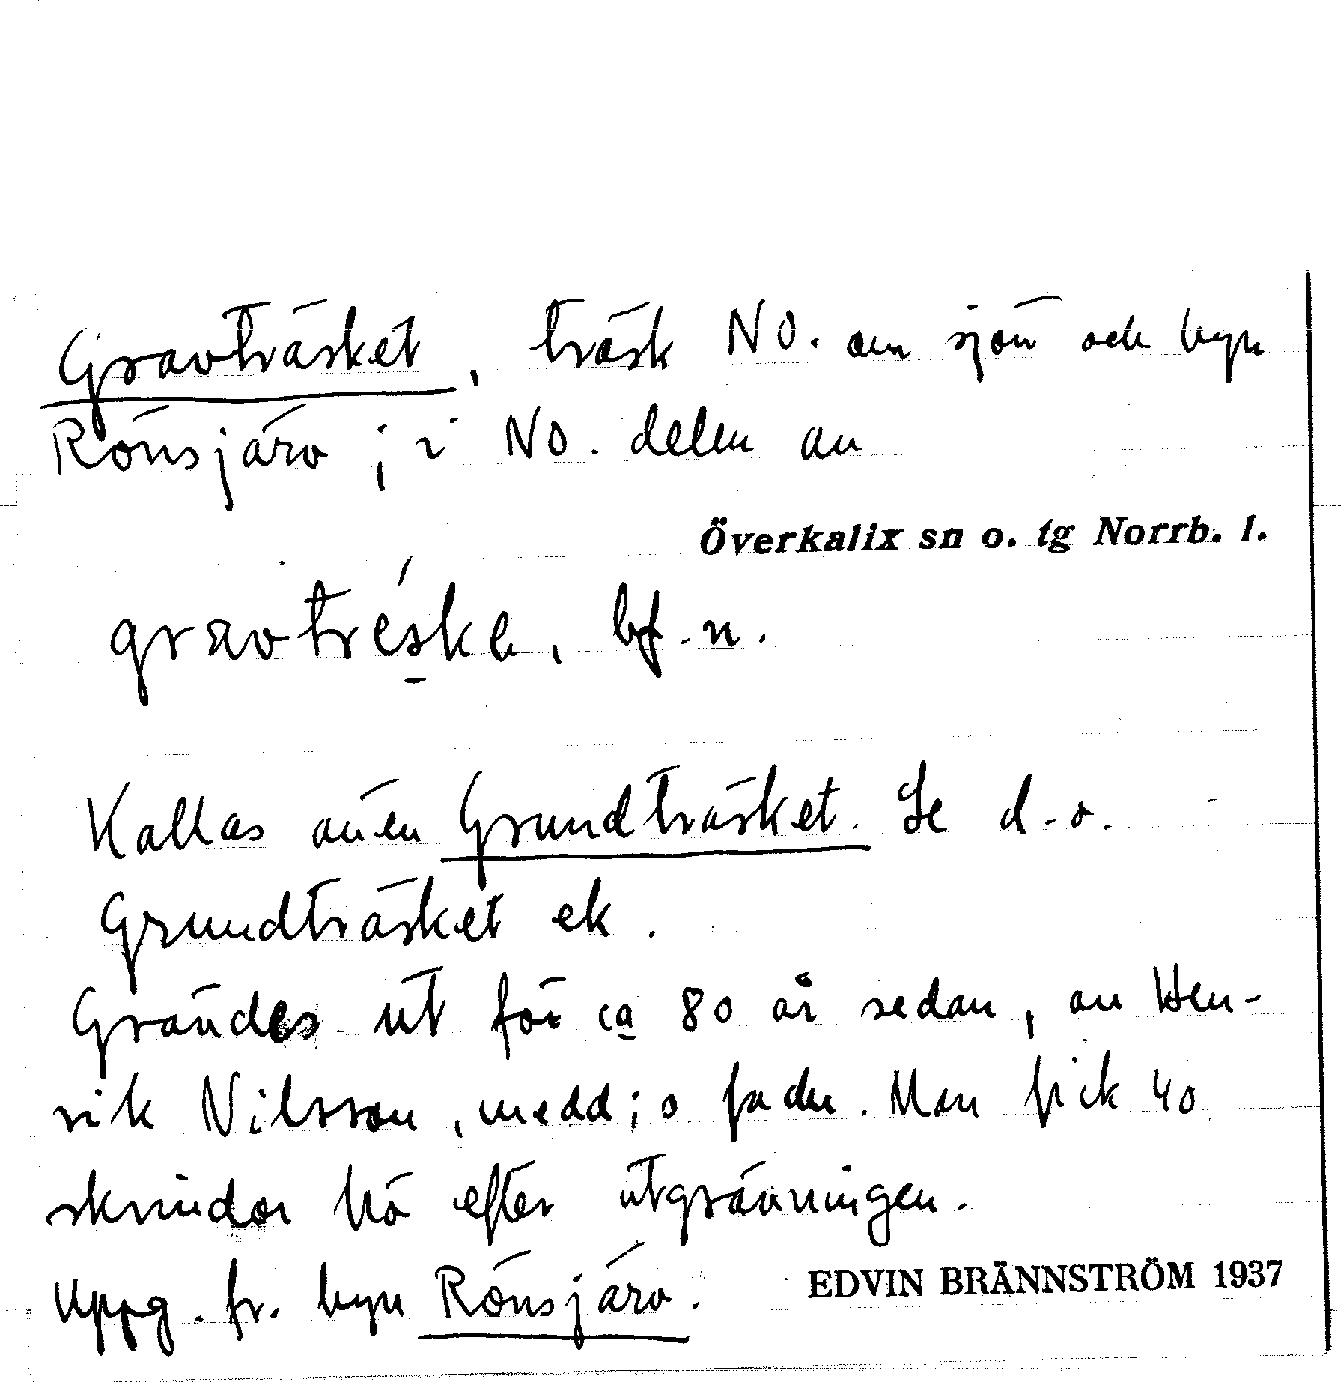 Gravträsket, träsk NO. om sjön och byn
Rönsjärv ; i NO. delen av
Överkalix sn o. tg Norrb. l.
gravtréske, bf.n.
Kallas även Grundträsket. Se d.o.
Grundträsket ek.
Grävdes ut för ca 80 år sedan, av Hen-
rik Nilsson, medd:s fader. Man fick 40
skrindor hö efter utgrävningen.
Uppg. fr. byn Rönsjärv.
EDVIN BRÄNNSTRÖM 1937